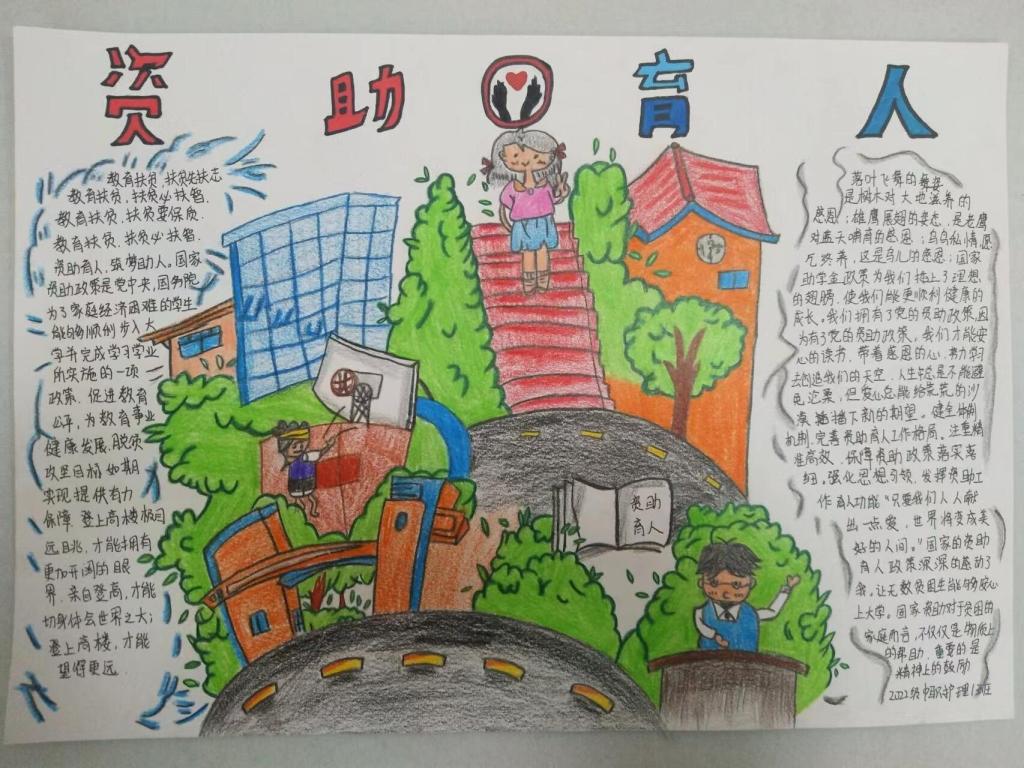 资 助 育 人
教育扶贫,扶贫先扶志
教育扶贫,扶贫必扶智.
教育扶贫,扶贫要保质.
教育扶贫,扶贫必扶智.
资助育人,筑梦助人,国家
资助政策是党中央,国务院
为了家庭经济困难的学生
能够顺利步入大
学并完成学习学业
所实施的一项
政策、促进教育
公平,为教育事业
健康发展,脱贫
攻坚目标如期
实现提供有力
保障.登上高楼极目
远眺,才能拥有
更加开阔的眼
界,亲自登高,才能
切身体会世界之大;
登上高楼,才能
望得更远.
资助
育人
落叶飞舞的舞姿
是树木对大地滋养的
感恩;雄鹰展翅的姿态,是老鹰
对蓝天哺育的感恩;乌鸟私情愿
乞终养,这是鸟儿的感恩;国家
助学金政策为我们插上了理想
的翅膀,使我们能更顺利健康的
成长。我们拥有了党的资助政策,因
为有了党的资助政策,我们才能安
心的读书,带着感恩的心,努力学习
去创造我们的天空.人生中总是不能避
免沧桑,但爱心总能给荒荒的沙
漠播撒下新的期望。健全体制
机制,完善资助育人工作格局。注重精
准高效、保障资助政策落实落
细。强化思想引领、发挥资助工
作育人功能"只要我们人人献
出一点爱,世界将变成美
好的人间。"国家的资助
育人政策深深的感动了
我,让无数贫困生能够安心
上大学。国家资助对于贫困的
家庭而言,不仅仅是物质上
的帮助、重要的是
精神上的鼓励
2022级中职护理1班